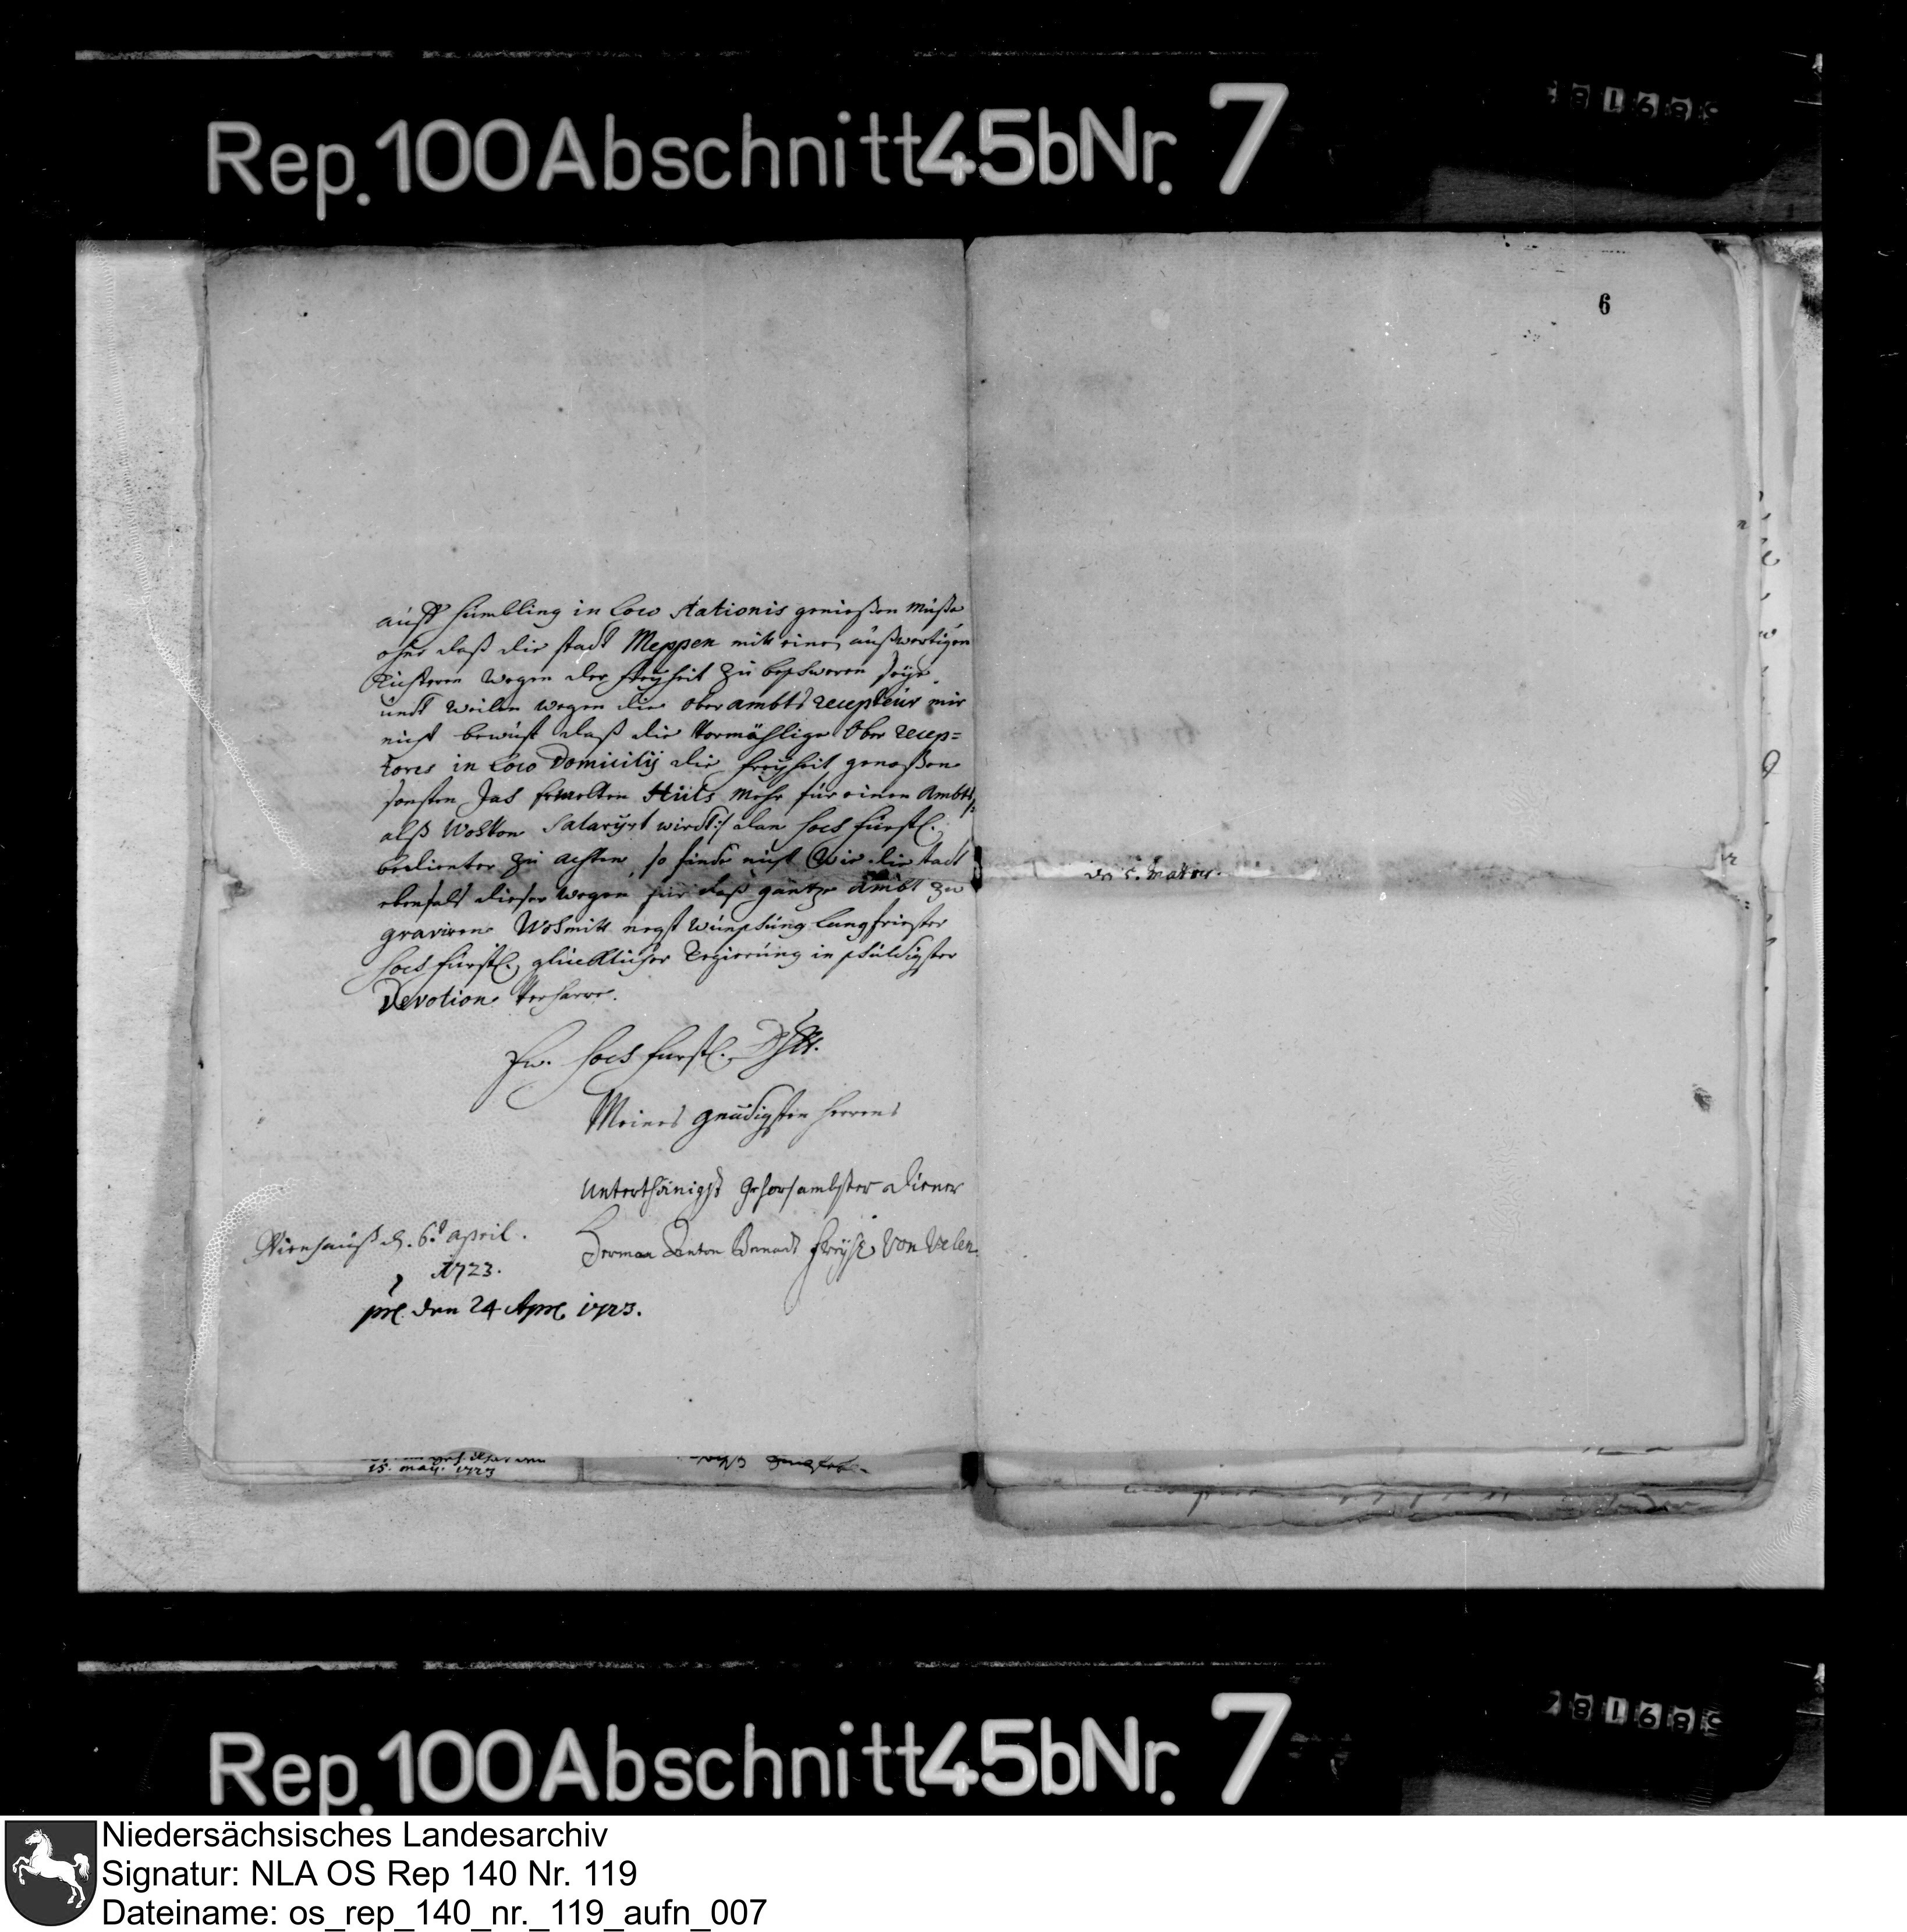 Rep. 100 Abschnitt 45b Nr. 7
6
auff Hümbling in loco stationis genießen müße
ohne daß die stadt Meppen mitt einen außwertigen
Richteren wegen der freyheit zu beschweren seye
undt weilen wegen die ober ambts recepteur mir
nicht bewust daß die vormahlige Ober recep=
tores in loco Domicilij die freyheit genoßen
sonsten Jas huts mehr für einen Ambts
alß salaryrt wirdt:/ dan hochfürstl.
bedienter zu achten, so finde nicht wie die stadt
ebenfals dieser wegen für daß gantze ambt zu
graviren. Womitt negst wünschung langfriester
hochfürstl. glücklicher regierung in schuldigster
Devotion verharre.
Ew. hochfürstl. Dhltt.
Meines gnädigsten herrens
Unterthänigst gehorsambster diener
Herman Anton Bernadt freyh. von Velen
d. 6t april.
1723.
prl. den 24 Apr. 1723.
15. maij. 1723
Rep. 100 Abschnitt 45b Nr. 7
Niedersächsisches Landesarchiv
Signatur: NLA OS Rep 140 Nr. 119
Dateiname: os_rep_140_nr._119_aufn_007